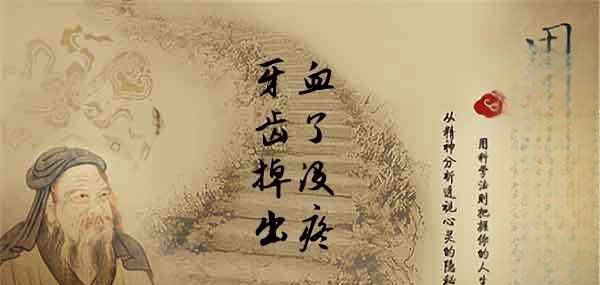 牙齿掉出
血了没疼
从精神分析透视心灵的隐秘
用科学法则把握你的人生